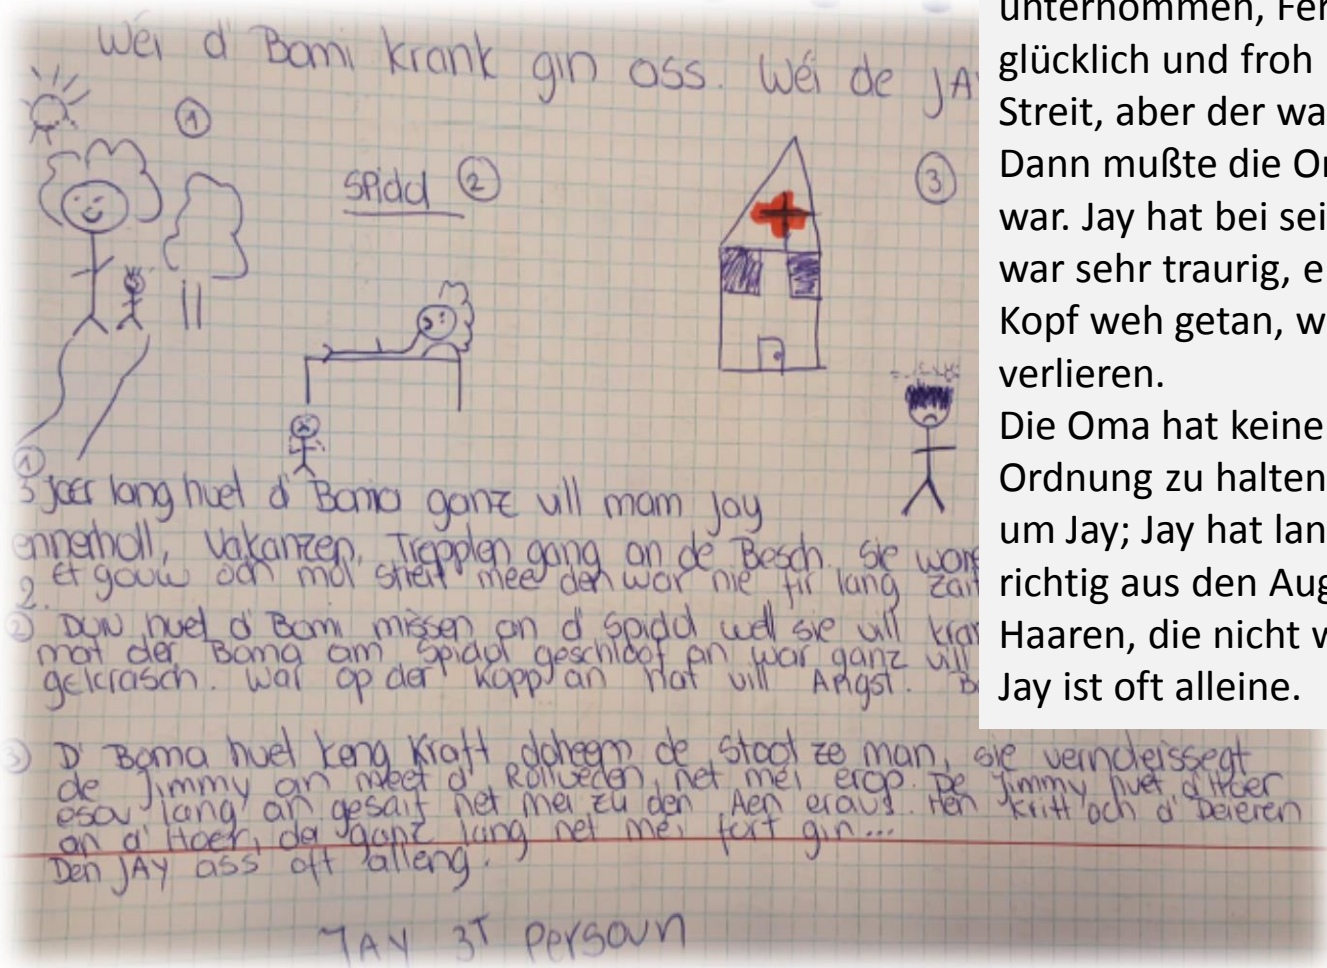 Wéi d' Bomi krank gin ass. Wéi de JA
①
Spidol ②
③
①
5 Joer lang huet d' Boma ganz vill mam Jay
ennerholl, Vakanzen, Trepplen gang an de Besch. Sie wore
2. Et gouw och mol streit mee den war nie fir lang zait
② DUN huet d' Bomi missen an d' Spidol well sie vill kran
mat der Boma am Spidol geschloof an war ganz vill
gekrasch. War op der Kopp an hat vill Angst. B
③ D' Boma huet keng Kraft doheem de Stool ze man, sie verndeissegt
de Jimmy an meet d' Rolueden net mei erop. De Jimmy huet d' Hoer
esou lang an gesait net mei zu den Aen eraus. Hen kritt och d' Deieren
an d' Hoer, dei ganz lang net mei fort gin...
Den JAY ass oft alleng.
JAY 3T Persoun
unternommen, Fer
glücklich und froh
Streit, aber der wa
Dann mußte die O
war. Jay hat bei sei
war sehr traurig, e
Kopf weh getan, w
verlieren.
Die Oma hat keine
Ordnung zu halten
um Jay; Jay hat lan
richtig aus den Aug
Haaren, die nicht w
Jay ist oft alleine.